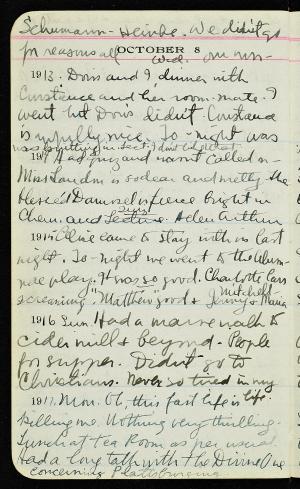 Schumann-Heinke. We didn't go
for reasons all
OCTOBER 8
Wed. our own-
1913. Doris and I dinner with
Constance and her room-mate. I
went but Doris didn't. Constance
is awfully nice. To-night was
1914 Had quiz and wasn't called on -
Miss Landon is so dear and pretty. The
Blessed Damosel is fierce. Bright in
Chem. and Lecture. Helen Arthur
1915 Olive came to stay with us last
night. To-night we went to the Alum-
nae play. It was so good. Charlotte
screaming. Matthew good & Jenny & Maria
Mitchell
1916 Sun. Had a marvelous walk to
cider mill & beyond. People
for supper. Didn't go to
Christians. Never so tired in my
life
1917. Mon. Oh, this fast life is
killing me. Nothing very thrilling.
Lunch at Tea Room as per usual.
Had a long talk with the Divine One
concerning Plattsburg